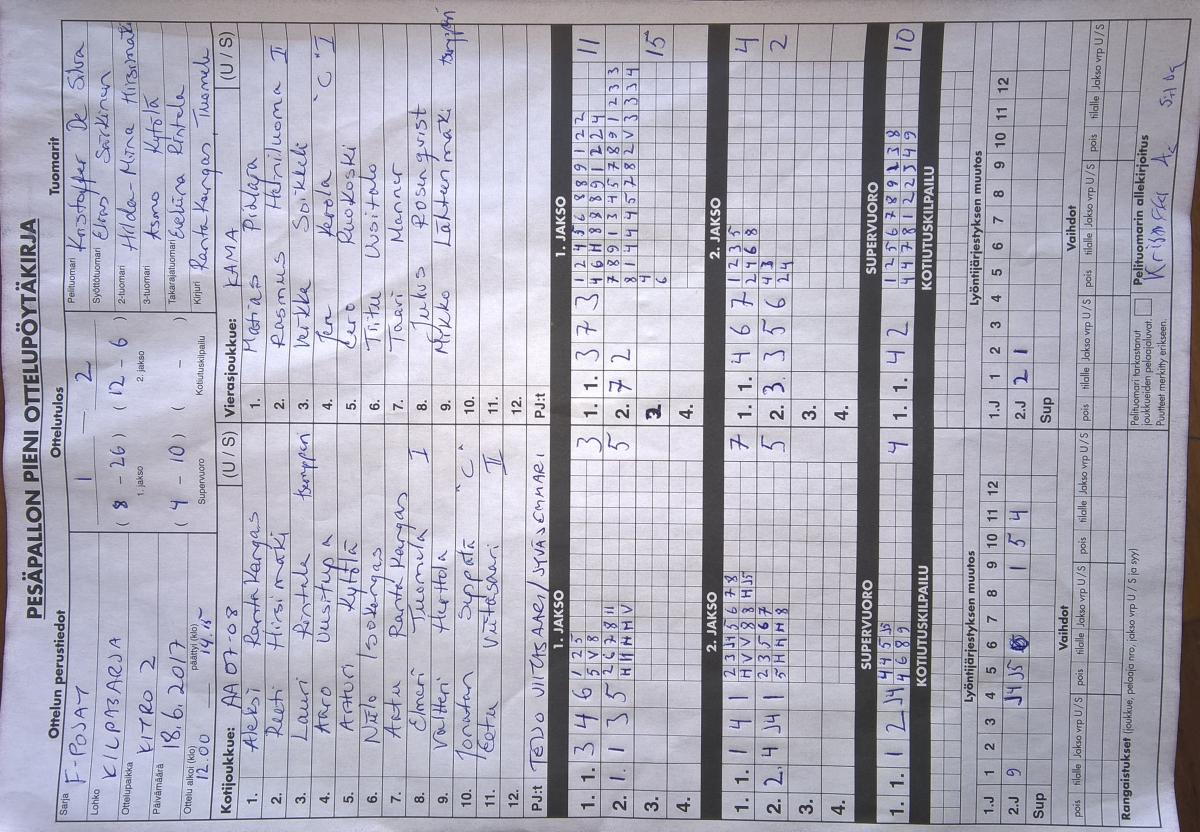 PESÄPALLON PIENI OTTELUPÖYTÄKIRJA
Ottelun perustiedot
Sarja F-POJAT
Lohko KILPASARJA
Ottelupaikka KITRO 2
Päivämäärä 18.6.2017
Ottelu alkoi (klo) 12.00 päättyi (klo) 14.15
Ottelutulos
1 — 2
( 8 - 26 ) ( 12 - 6 )
1. jakso 2. jakso
( 4 - 10 ) ( - )
Supervuoro Kotiutuskilpailu
Tuomarit
Pelituomari Kristoffer De Silva
Syöttötuomari Elias Särkinen
2-tuomari Hilda-Miina Hirsimäki
3-tuomari Asmo Kytölä
Takarajatuomari Eveliina Rintala
Kirjuri Rantakangas, Tuomela
Kotijoukkue: AA 07-08 (U / S)
1. Aleksi Rantakangas
2. Reeti Hirsimäki
3. Lauri Rentala tsemppari
4. Aaro Uusitupa
5. Artturi Kytölä
6. Niilo Isokangas
7. Aatu Rantakangas
8. Elmeri Tuomela I
9. Valtteri Hertola
10. Jonatan Seppälä "C"
11. Eetu Viitasaari II
12.
PJ:t TERO VIITASAARI / SYVÄJEMMARI
Vierasjoukkue: KAMA (U / S)
1. Matias Pihlaja
2. Rasmus Heiniluoma II
3. Verkka Soikkeli
4. Jere Kerola "C" I
5. Eero Ruokoski
6. Tiitu Uusitalo
7. Taavi Manner
8. Julius Rosenqvist
9. Mikko Lähteenmäki tsemppari
10.
11.
12.
PJ:t
1. JAKSO
1. 1. 3 4 6 1 2 5 3
5 V 8
2. 1. 1 3 5 2 6 7 8 11 5
H H H H V
3.
4.
1. JAKSO
1. 1. 3 7 3 1 2 4 5 6 8 8 9 1 2 2 11
4 6 H 8 8 8 9 1 2 2 4
2. 7 2 7 8 9 1 3 4 5 7 8 9 1 2 3 3
8 1 4 4 4 5 7 8 2 V 3 3 3 4
3. 4 15
6
4.
2. JAKSO
1. 1. 1 4 1 2 3 J4 J5 6 7 8 7
H V V 8 8 H J5
2. 4 J4 1 2 3 5 6 7 5
5 H H H 8
3.
4.
2. JAKSO
1. 1. 4 6 7 1 2 3 5 4
2 4 6 8
2. 3. 3 5 6 4 3 2
2 4
3.
4.
SUPERVUORO
1. 1. 1 2 J4 4 4 5 J5 4
4 6 8 9
KOTIUTUSKILPAILU
SUPERVUORO
1. 1. 4 2 1 2 5 6 7 8 9 2 3 8 10
4 4 7 8 1 2 2 3 4 9
KOTIUTUSKILPAILU
Lyöntijärjestyksen muutos
1 2 3 4 5 6 7 8 9 10 11 12
1.J
2.J 9 J4 J5 1 5 4
Sup
Vaihdot
pois tilalle Jakso vrp U / S pois tilalle Jakso vrp U / S pois tilalle Jakso vrp U / S
Lyöntijärjestyksen muutos
1 2 3 4 5 6 7 8 9 10 11 12
1.J
2.J 2 1
Sup
Vaihdot
pois tilalle Jakso vrp U / S pois tilalle Jakso vrp U / S pois tilalle Jakso vrp U / S
Rangaistukset (joukkue, pelaaja nro, jakso vrp U / S ja syy)
Pelituomari tarkastanut
joukkueiden pelaajaluvat.
Puutteet merkitty erikseen.
Pelituomarin allekirjoitus